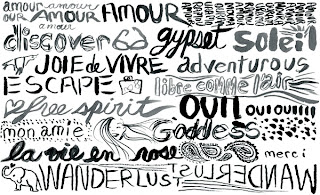 amour amour our
our AMOUR AMOUR
amour
discover gypset soleil
JOIE de VIVRE adventurous
ESCAPE libre comme l'air
free spirit OUI oui oui!!!
mon amie Goddess
la vie en rose merci
WANDERLUST WANDERLUST